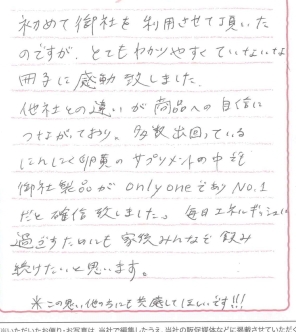 初めて御社を利用させて頂いた
のですが、とてもわかりやすくていねいな
冊子に感動致しました。
他社との違いが商品への自信に
つながっており、多数出回っている
にんにく卵黄のサプリメントの中で
御社製品がonly oneであり No.1
だと確信致しました。毎日エネルギッシュに
過ごすためにも家族みんなで飲み
続けたいと思います。
※この思い他の方にも共感してほしいです!!!
いただいたお便り・お写真は、当社で編集したうえ、当社の販促媒体などに掲載させていただく